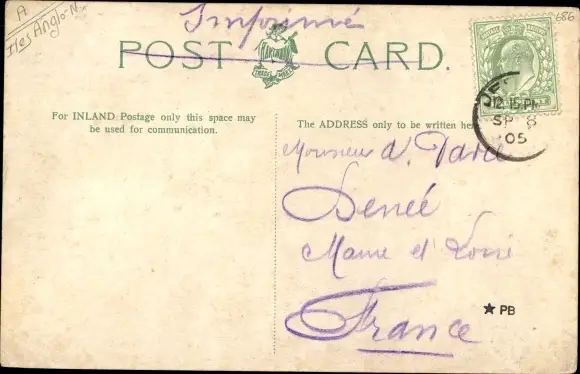 A
Iles Anglo-N
Imprimé
686
POST CARD.
TRADE MARK
12.15 PM
SP 8
05
For INLAND Postage only this space may
be used for communication.
The ADDRESS only to be written here
Monsieur A.
Denée
Maine et Loire
France
★ PB